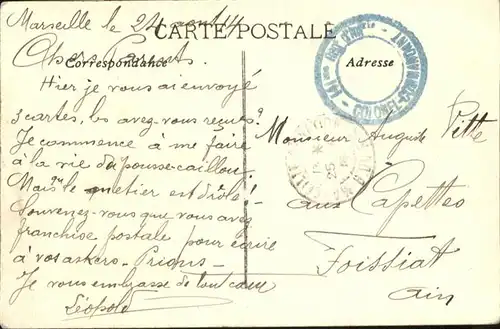 Marseille le 24 août 14
CARTE POSTALE
Chers Parents
Correspondance
Adresse
Hier je vous ai envoyé
3 cartes, les avez-vous reçues?
Je commence à me faire
à la vie de pousse-caillou.
Mais le métier est drôle!
Souvenez-vous que vous avez
franchise postale pour écrire
à vos
Je vous embrasse de tout cœur
Léopold
Monsieur Auguste Pitte
aux Capettes
Foissiat
Ain
COLONEL-COMMANDANT